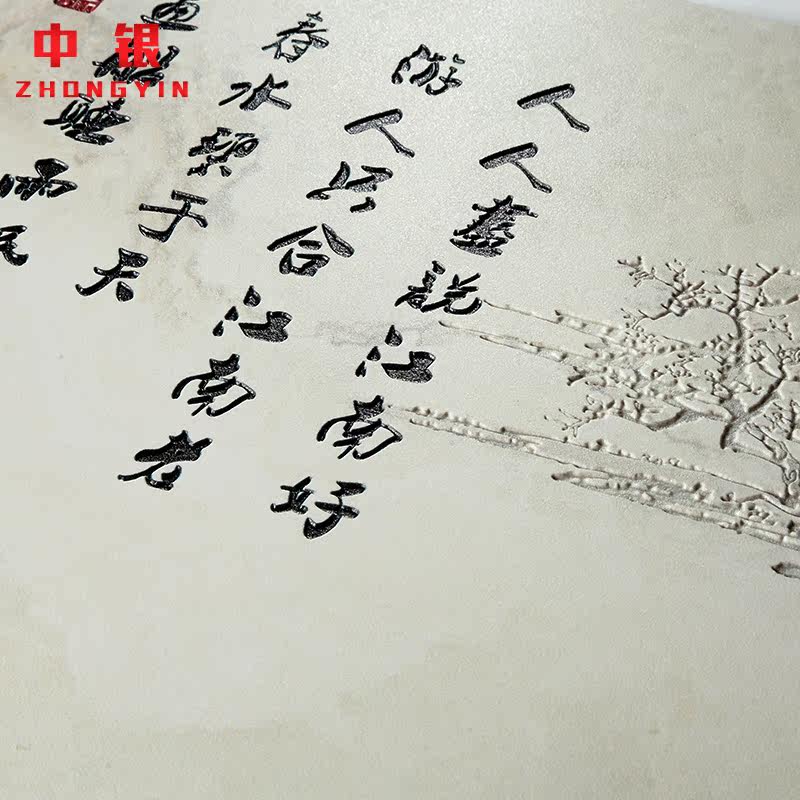 中银
ZHONGYIN
人人盡説江南好
游人只合江南老
春水碧于天
画船聽雨